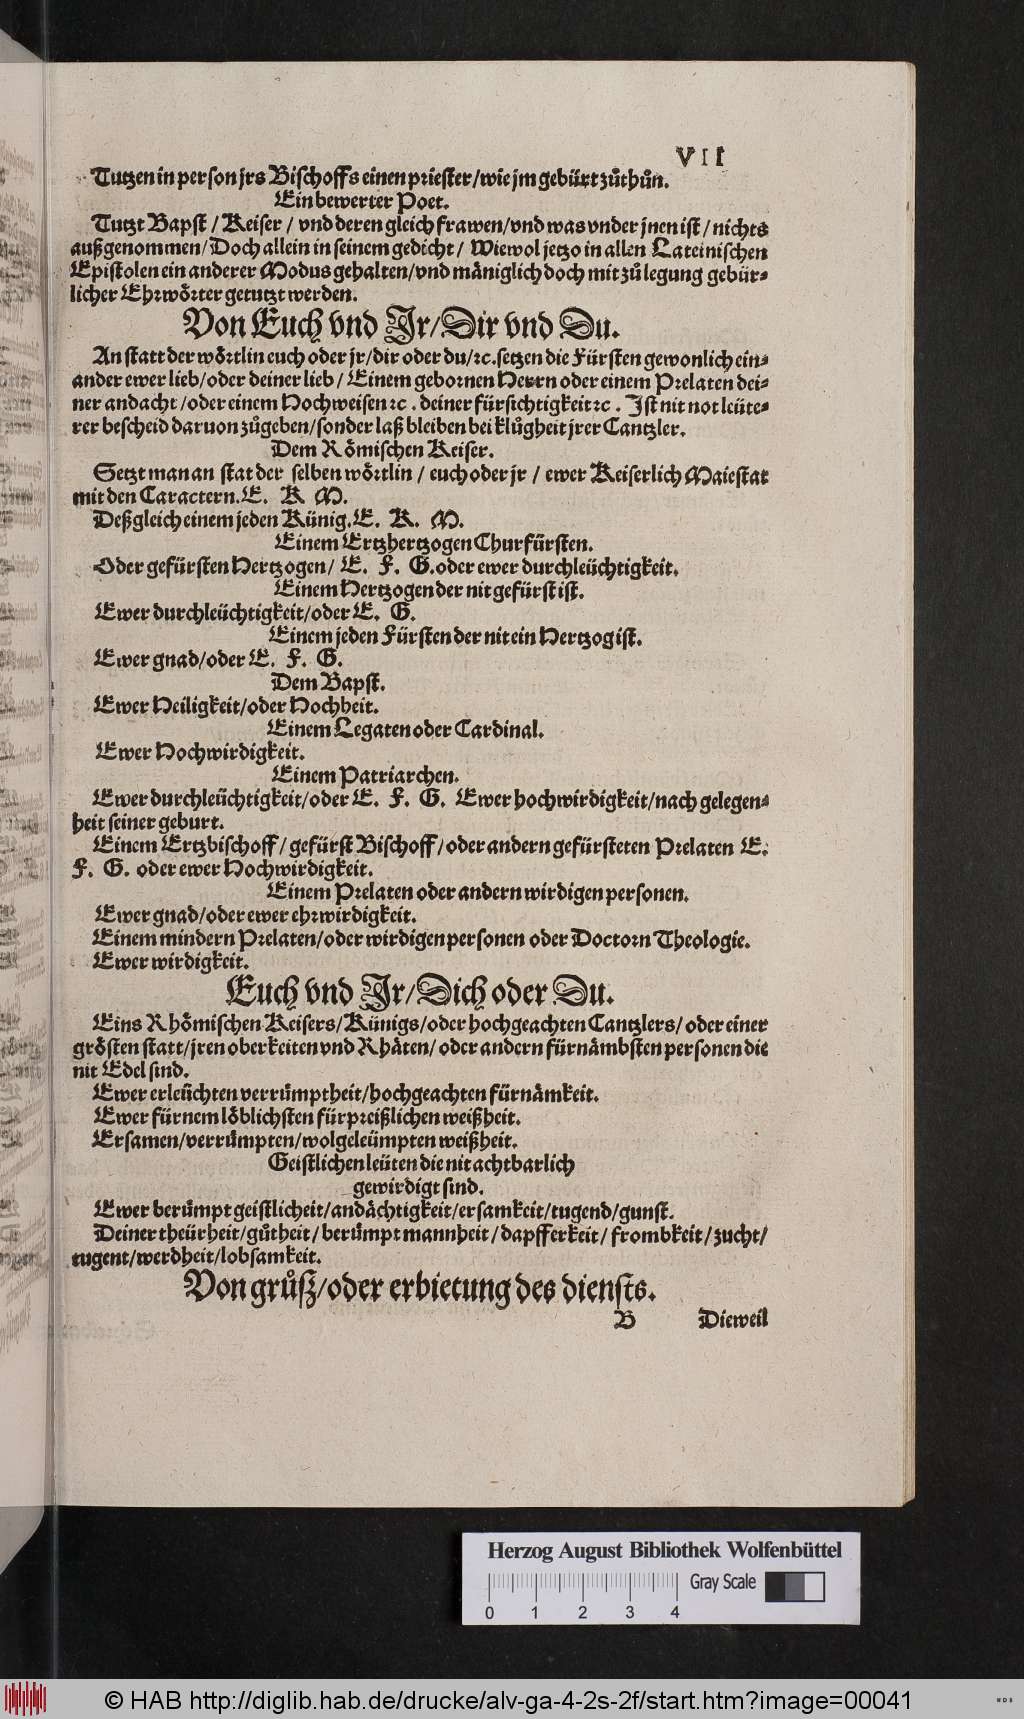 VII
Tutzen in person jrs Bischoffs einen priester/wie jm gebürt zůthůn.
Ein bewerter Poet.
Tutzt Bapst / Keiser / vnd deren gleich frawen/vnd was vnder jnen ist / nichts
außgenommen/ Doch allein in seinem gedicht / Wiewol jetzo in allen Lateinischen
Epistolen ein anderer Modus gehalten/vnd mäniglich doch mit zů legung gebür-
licher Ehrwörter getutzt werden.
Von Euch vnd Jr/Dir vnd Du.
An statt der wörtlin euch oder jr/dir oder du/ꝛc. setzen die Fürsten gewonlich ein-
ander ewer lieb/oder deiner lieb / Einem gebornen Herrn oder einem Prelaten dei-
ner andacht /oder einem Hochweisen ꝛc . deiner fürsichtigkeit ꝛc . Jst nit not leüte-
rer bescheid daruon zůgeben/sonder laß bleiben bei klůgheit jrer Cantzler.
Dem Römischen Keiser.
Setzt man an stat der selben wörtlin / euch oder jr / ewer Keiserlich Maiestat
mit den Caractern. E. K M.
Deßgleich einem jeden Künig. E. K. M.
Einem Ertzhertzogen Churfürsten.
Oder gefürsten Hertzogen/ E. F. G. oder ewer durchleüchtigkeit.
Einem Hertzogen der nit gefürst ist.
Ewer durchleüchtigkeit/oder E. G.
Einem jeden Fürsten der nit ein Hertzog ist.
Ewer gnad/oder E. F. G.
Dem Bapst.
Ewer Heiligkeit/oder Hochheit.
Einem Legaten oder Cardinal.
Ewer Hochwirdigkeit.
Einem Patriarchen.
Ewer durchleüchtigkeit/oder E. F. G. Ewer hochwirdigkeit/nach gelegen-
heit seiner geburt.
Einem Ertzbischoff / gefürst Bischoff / oder andern gefürsteten Prelaten E.
F. G. oder ewer Hochwirdigkeit.
Einem Prelaten oder andern wirdigen personen.
Ewer gnad/oder ewer ehrwirdigkeit.
Einem mindern Prelaten/oder wirdigen personen oder Doctorn Theologie.
Ewer wirdigkeit.
Euch vnd Jr/Dich oder Du.
Eins Rhömischen Keisers/Künigs/oder hochgeachten Cantzlers/ oder einer
grösten statt/jren oberkeiten vnd Rhäten/ oder andern fürnämbsten personen die
nit Edel sind.
Ewer erleüchten verrümptheit/hochgeachten fürnämkeit.
Ewer fürnem löblichsten fürpreißlichen weißheit.
Ersamen/verrümpten/wolgeleümpten weißheit.
Geistlichen leüten die nit achtbarlich
gewirdigt sind.
Ewer berümpt geistlicheit/andächtigkeit/ersamkeit/tugend/gunst.
Deiner theürheit/gůtheit/ berümpt mannheit / dapfferkeit / frombkeit / zucht/
tugent/werdheit/lobsamkeit.
Von grůsz/oder erbietung des diensts.
B Dieweil
Herzog August Bibliothek Wolfenbüttel
Gray Scale
0 1 2 3 4
© HAB http://diglib.hab.de/drucke/alv-ga-4-2s-2f/start.htm?image=00041
WDB